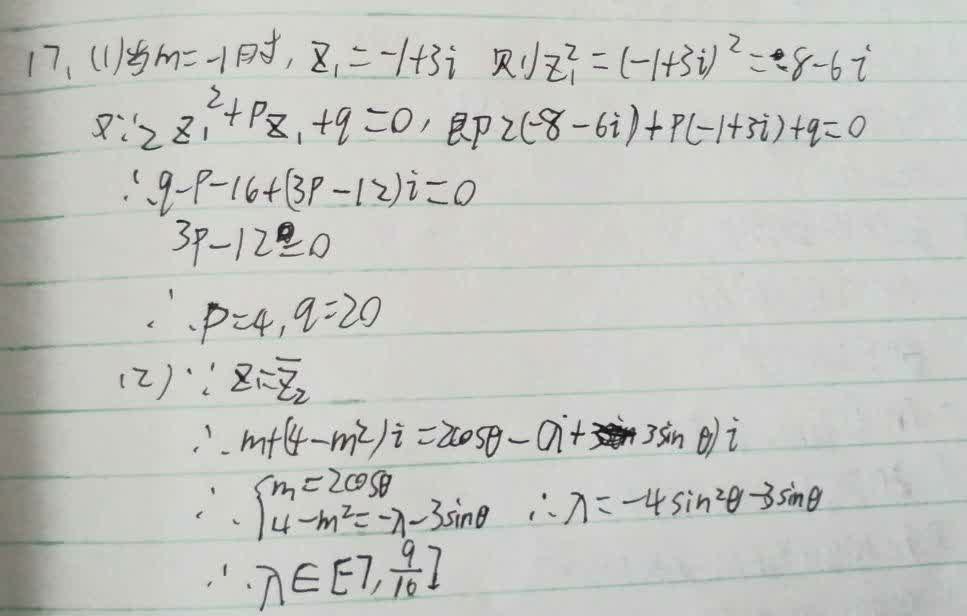 17. (1)当m=-1时, z₁=-1+3i 则z₁²=(-1+3i)²=-8-6i
又∵2z₁²+pz₁+q=0, 即2(-8-6i)+p(-1+3i)+q=0
∴q-p-16+(3p-12)i=0
3p-12=0
∴p=4, q=20
(2)∵z₁=z̄₂
∴m+(4-m²)i=2cosθ-(λ+3sinθ)i
∴{m=2cosθ
4-m²=-λ-3sinθ ∴λ=-4sin²θ-3sinθ
∴λ∈[-7, 9/16]